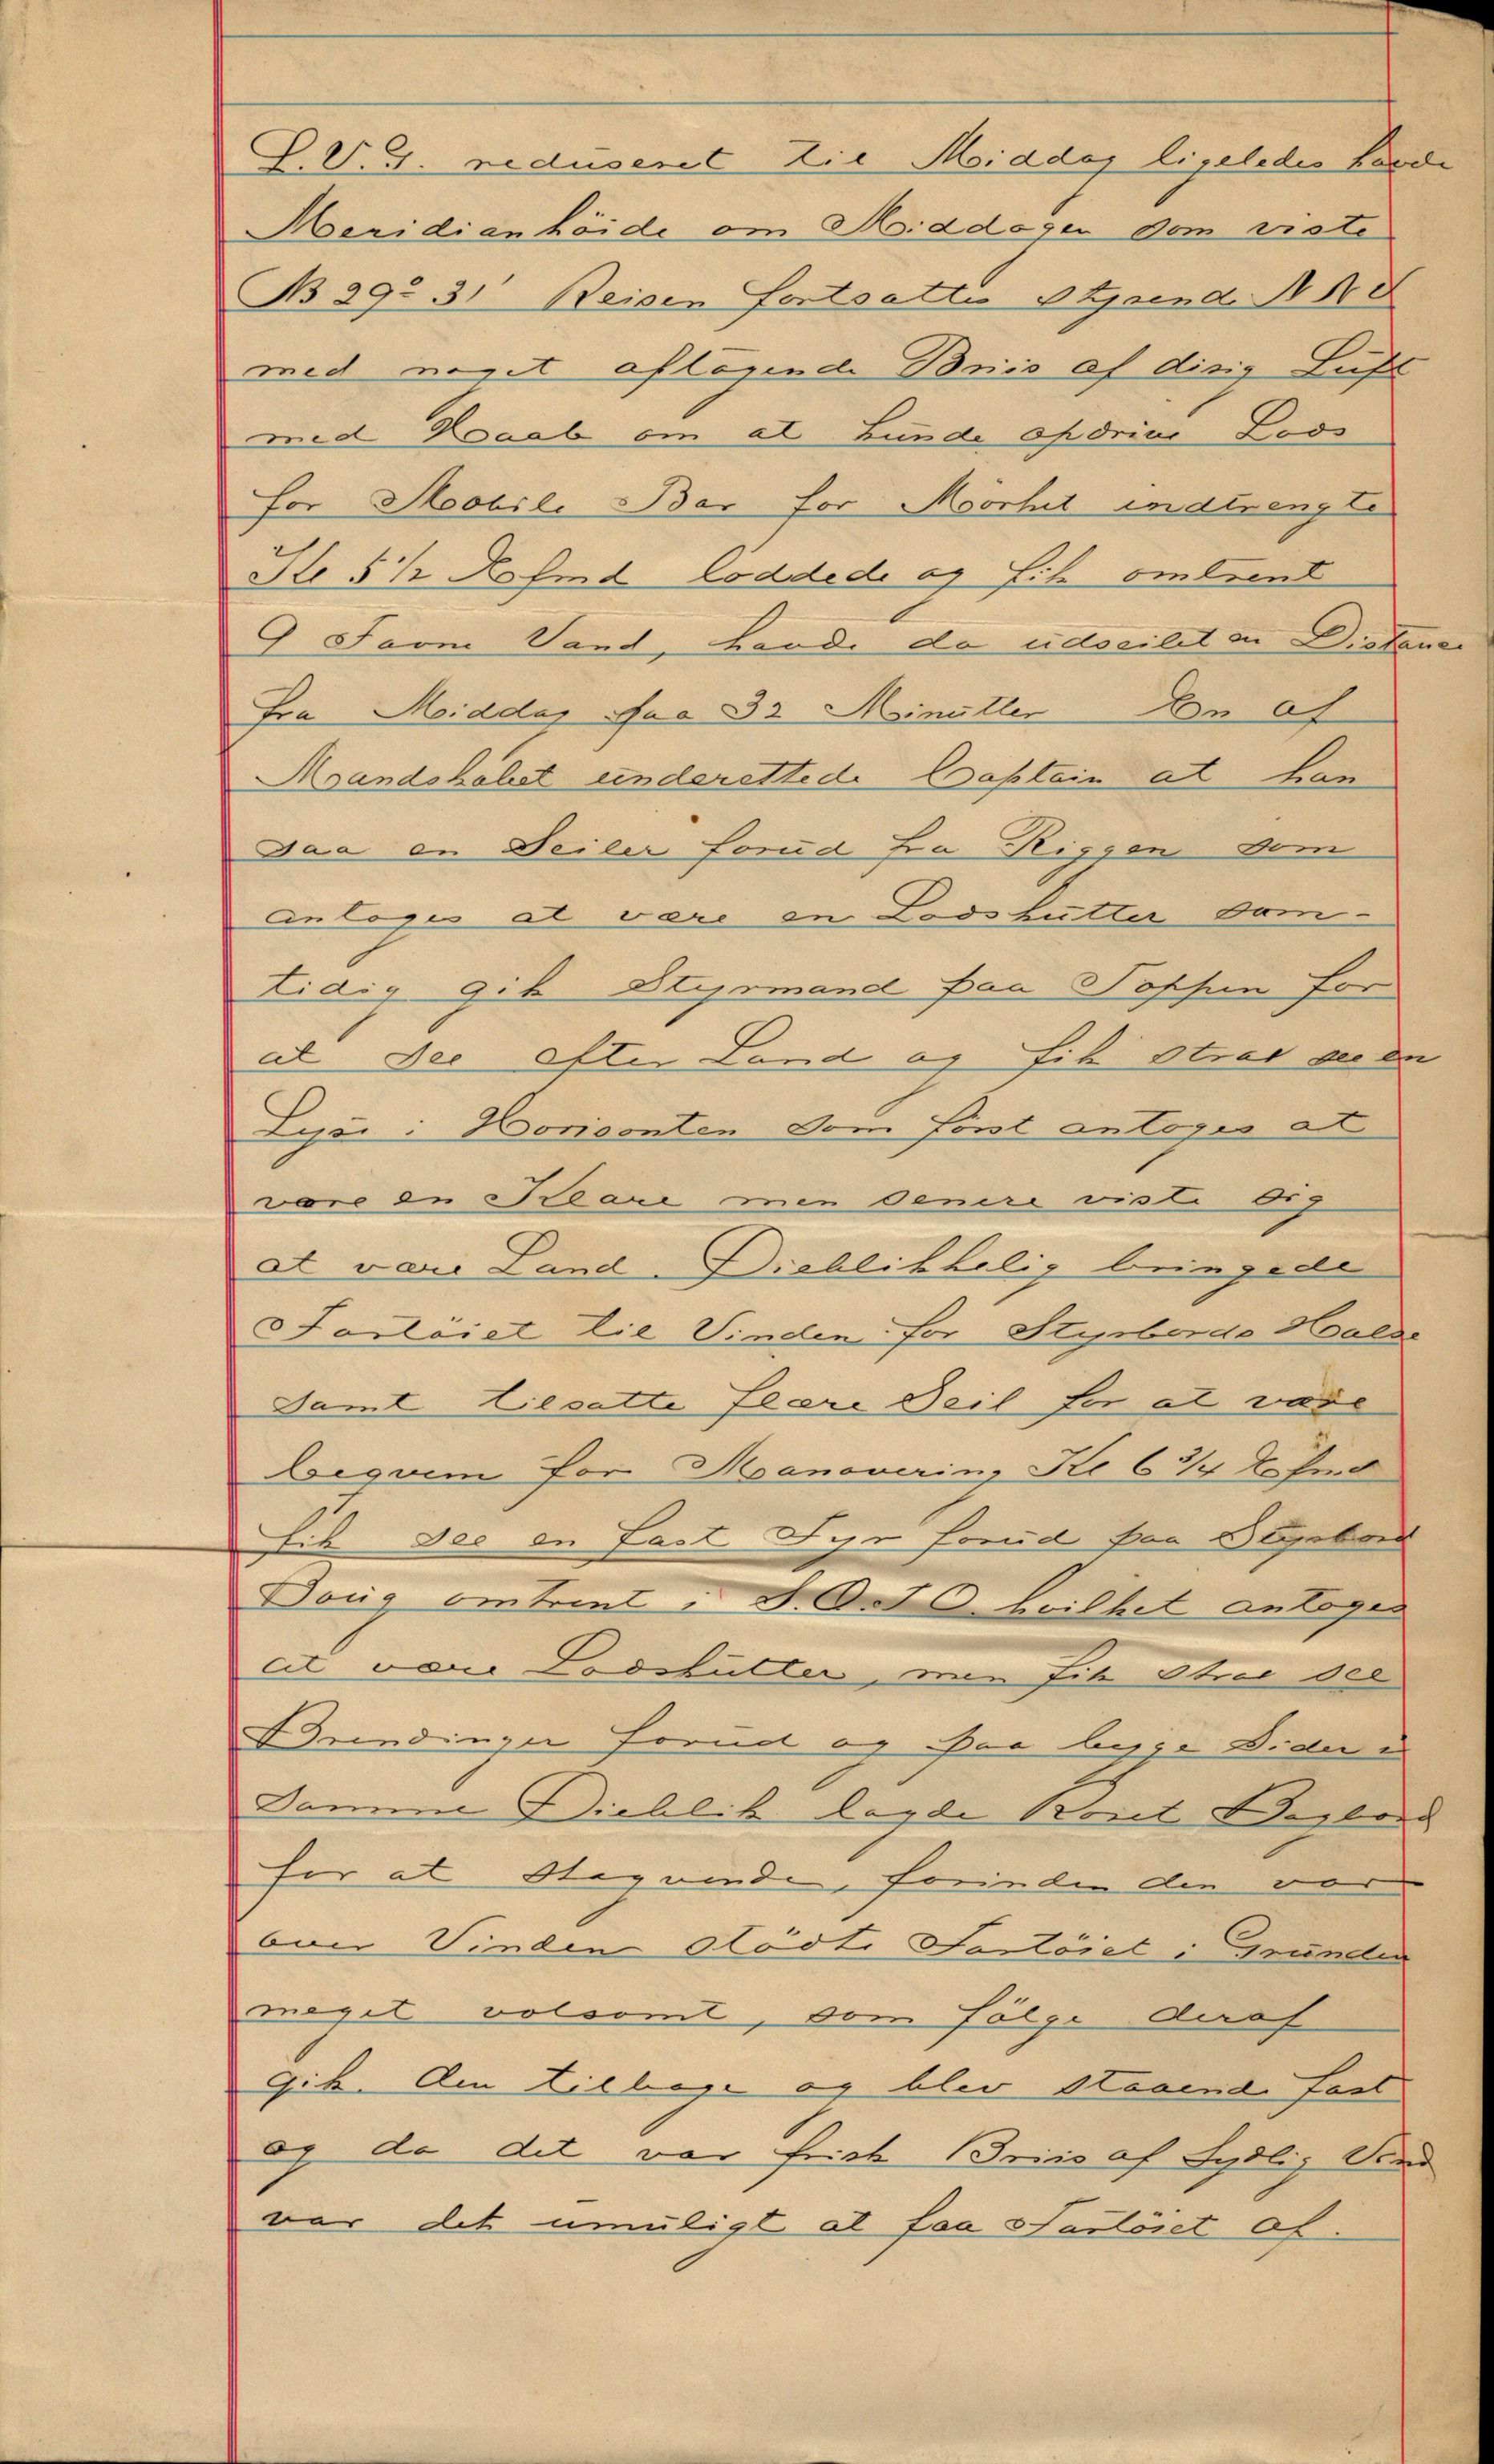 L.V.G. reduseret til Middag ligeledes havde
Meridianhöide om Middagen som viste
B 29° 31' Reisen fortsattes styrend NNO
med noget aftagende Briis af disig Luft
med Haab om at kunde opdrive Lods
for Mobile Bar for Mörket indtrengte
Kl 5½ Efmd loddede og fik omtrent
9 Favne Vand, havde da udseilet en Distance
fra Middag paa 32 Minutter En af
Mandskabet underettede Captain at han
saa en Seiler forud fra Riggen som
antoges at være en Lodskutter sam-
tidig gik Styrmand paa Toppen for
at see efter Land og fik strax see en
Lysn i Horisonten som först antoges at
være en Klare men senere viste sig
at være Land. Öieblikkelig bringede
Fartöiet til Vinden for Styrbords Halse
samt tilsatte flere Seil for at være
beqvem for Manovering Kl 6¾ Efmd
fik see en fast Fyr forud paa Styrbord
Boug omtrent i S.O.t.O. hvilket antoges
at være Lodskutter, men fik strax see
Brendinger forud og paa begge Sider i
Samme Öieblik lagde Roret Bagbord
for at Stagvende, forinden den var
over Vinden stödte Fartöiet i Grunden
meget volsomt, som fölge deraf
gik den tilbage og blev staaende fast
og da det var frisk Briis af Sydlig Vind
var det umuligt at faa Fartöiet af.